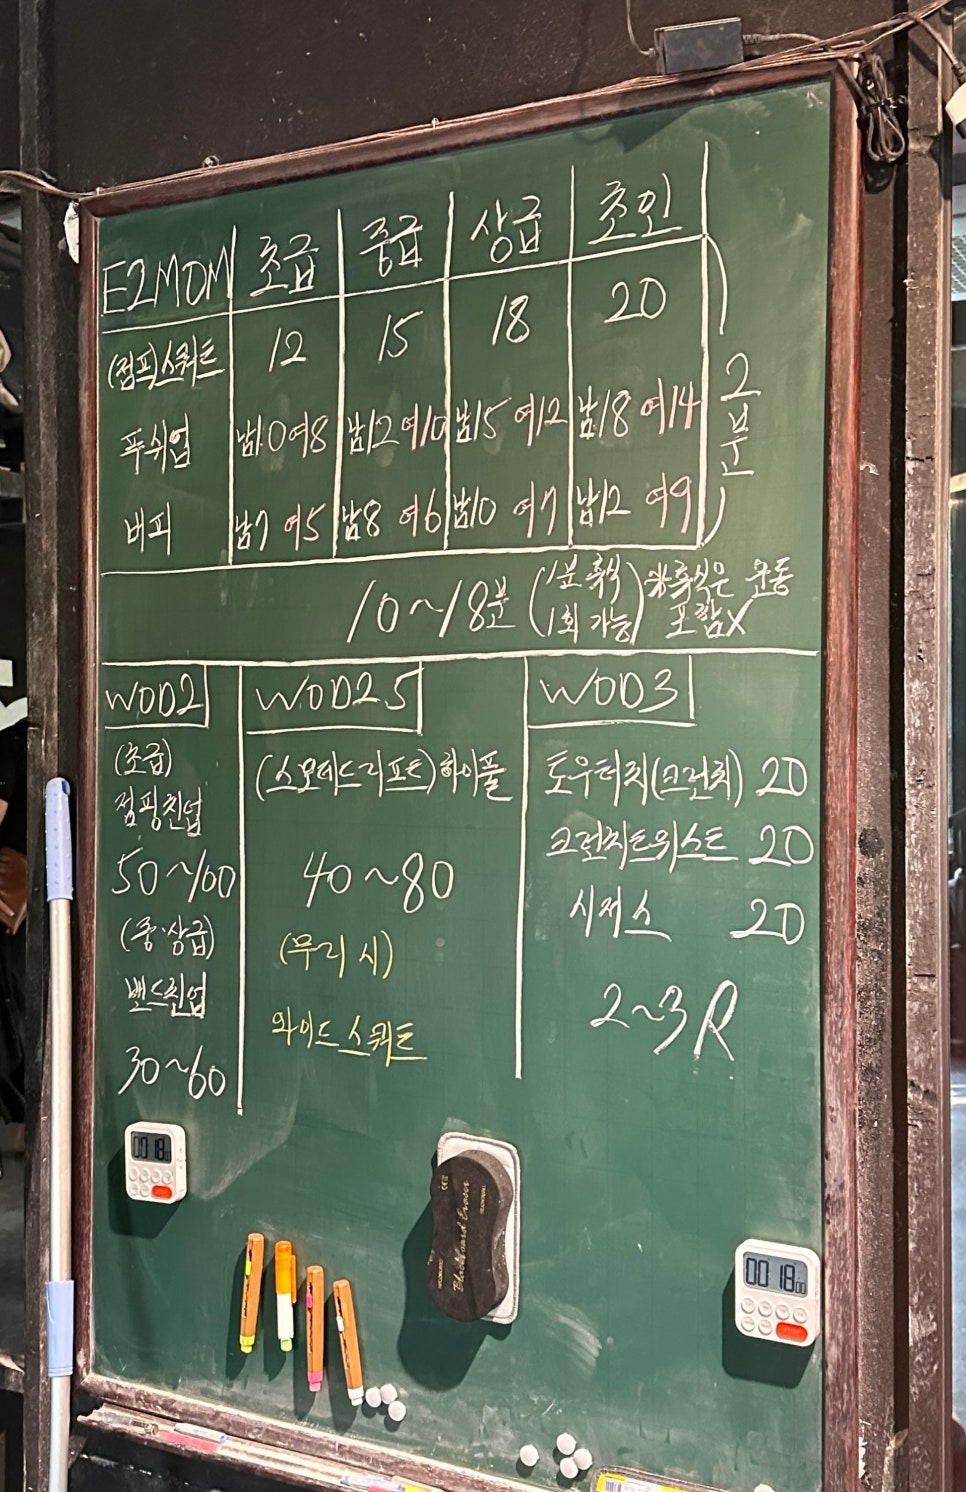 E2MOM 초급 중급 상급 초인
(점프)스쿼트 12 15 18 20
푸쉬업 남10 여8 남12 여10 남15 여12 남18 여14
버피 남7 여5 남8 여6 남10 여7 남12 여9
(2분)
10~18분 (1분 휴식 1회 가능) ※휴식은 운동 포함X
WOD2
(초급)
점핑친업
50~100
(중·상급)
밴드친업
30~60
WOD2.5
(스모데드리프트)하이풀
40~80
(무리 시)
와이드 스쿼트
WOD3
토우터치(크런치) 20
크런치트위스트 20
시저스 20
2~3R
00 18
Blackboard Eraser
00 18 00